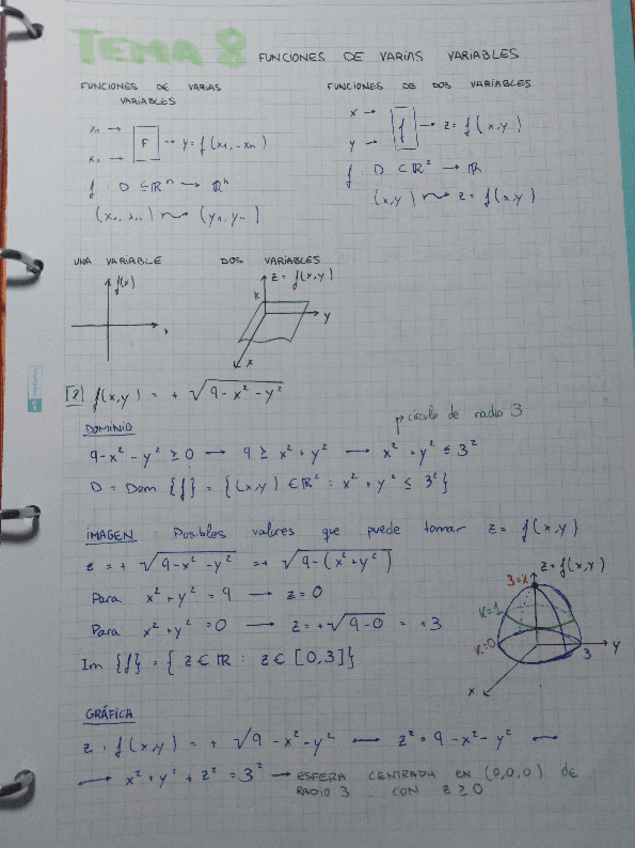 TEMA 8 FUNCIONES DE VARIAS VARIABLES
FUNCIONES DE VARIAS VARIABLES
x₁ →
F → y = f(x₁, -xₙ)
f : D ⊆ ℝⁿ → ℝⁿ
FUNCIONES DE DOS VARIABLES
x →
y →
f → z = f(x,y)
f : D ⊂ ℝ² → ℝ
(x,y) ⇝ z = f(x,y)
UNA VARIABLE
f(x)
DOS VARIABLES
z = f(x,y)
K
y
x
2 f(x,y) = + √(9 - x² - y²)
DOMINIO
círculo de radio 3
9 - x² - y² ≥ 0 → 9 ≥ x² + y² → x² + y² ≤ 3²
D = Dom {f} = {(x,y) ∈ ℝ² : x² + y² ≤ 3²}
IMAGEN : Posibles valores que puede tomar z = f(x,y)
z = + √(9 - x² - y²) = + √(9 - (x² + y²))
Para x² + y² = 9 → z = 0
Para x² + y² = 0 → z = + √(9 - 0) = +3
Im {f} = { z ∈ ℝ : z ∈ [0,3]}
z = f(x,y)
3=k
K=1
K=0
3
y
x
GRÁFICA
z = f(x,y) = + √(9 - x² - y²) → z² = 9 - x² - y² →
→ x² + y² + z² = 3² → ESFERA CENTRADA EN (0,0,0) de
RADIO 3 CON z ≥ 0